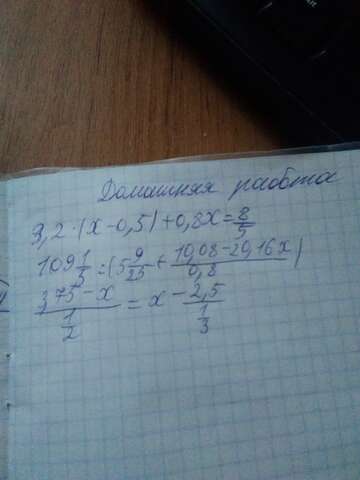 Домашняя работа
3,2·(x-0,5)+0,8x=8/5
109 1/5=(5 9/25+(10,08-20,16x)/0,8)
(3,75-x)/(1/2)=x-2,5/(1/3)